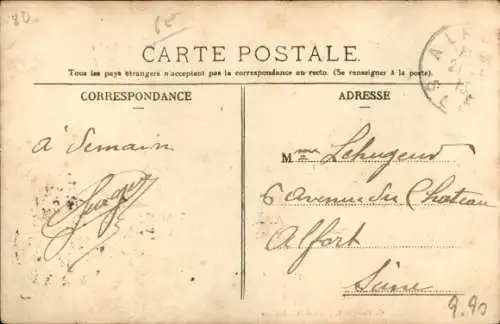 80
65
CARTE POSTALE.
Tous les pays étrangers n'acceptent pas la correspondance au recto. (Se renseigner à la poste).
CORRESPONDANCE
ADRESSE
à Demain
Mme Lehugeur
6 Avenue du Chateau
Alfort
Seine
9.90